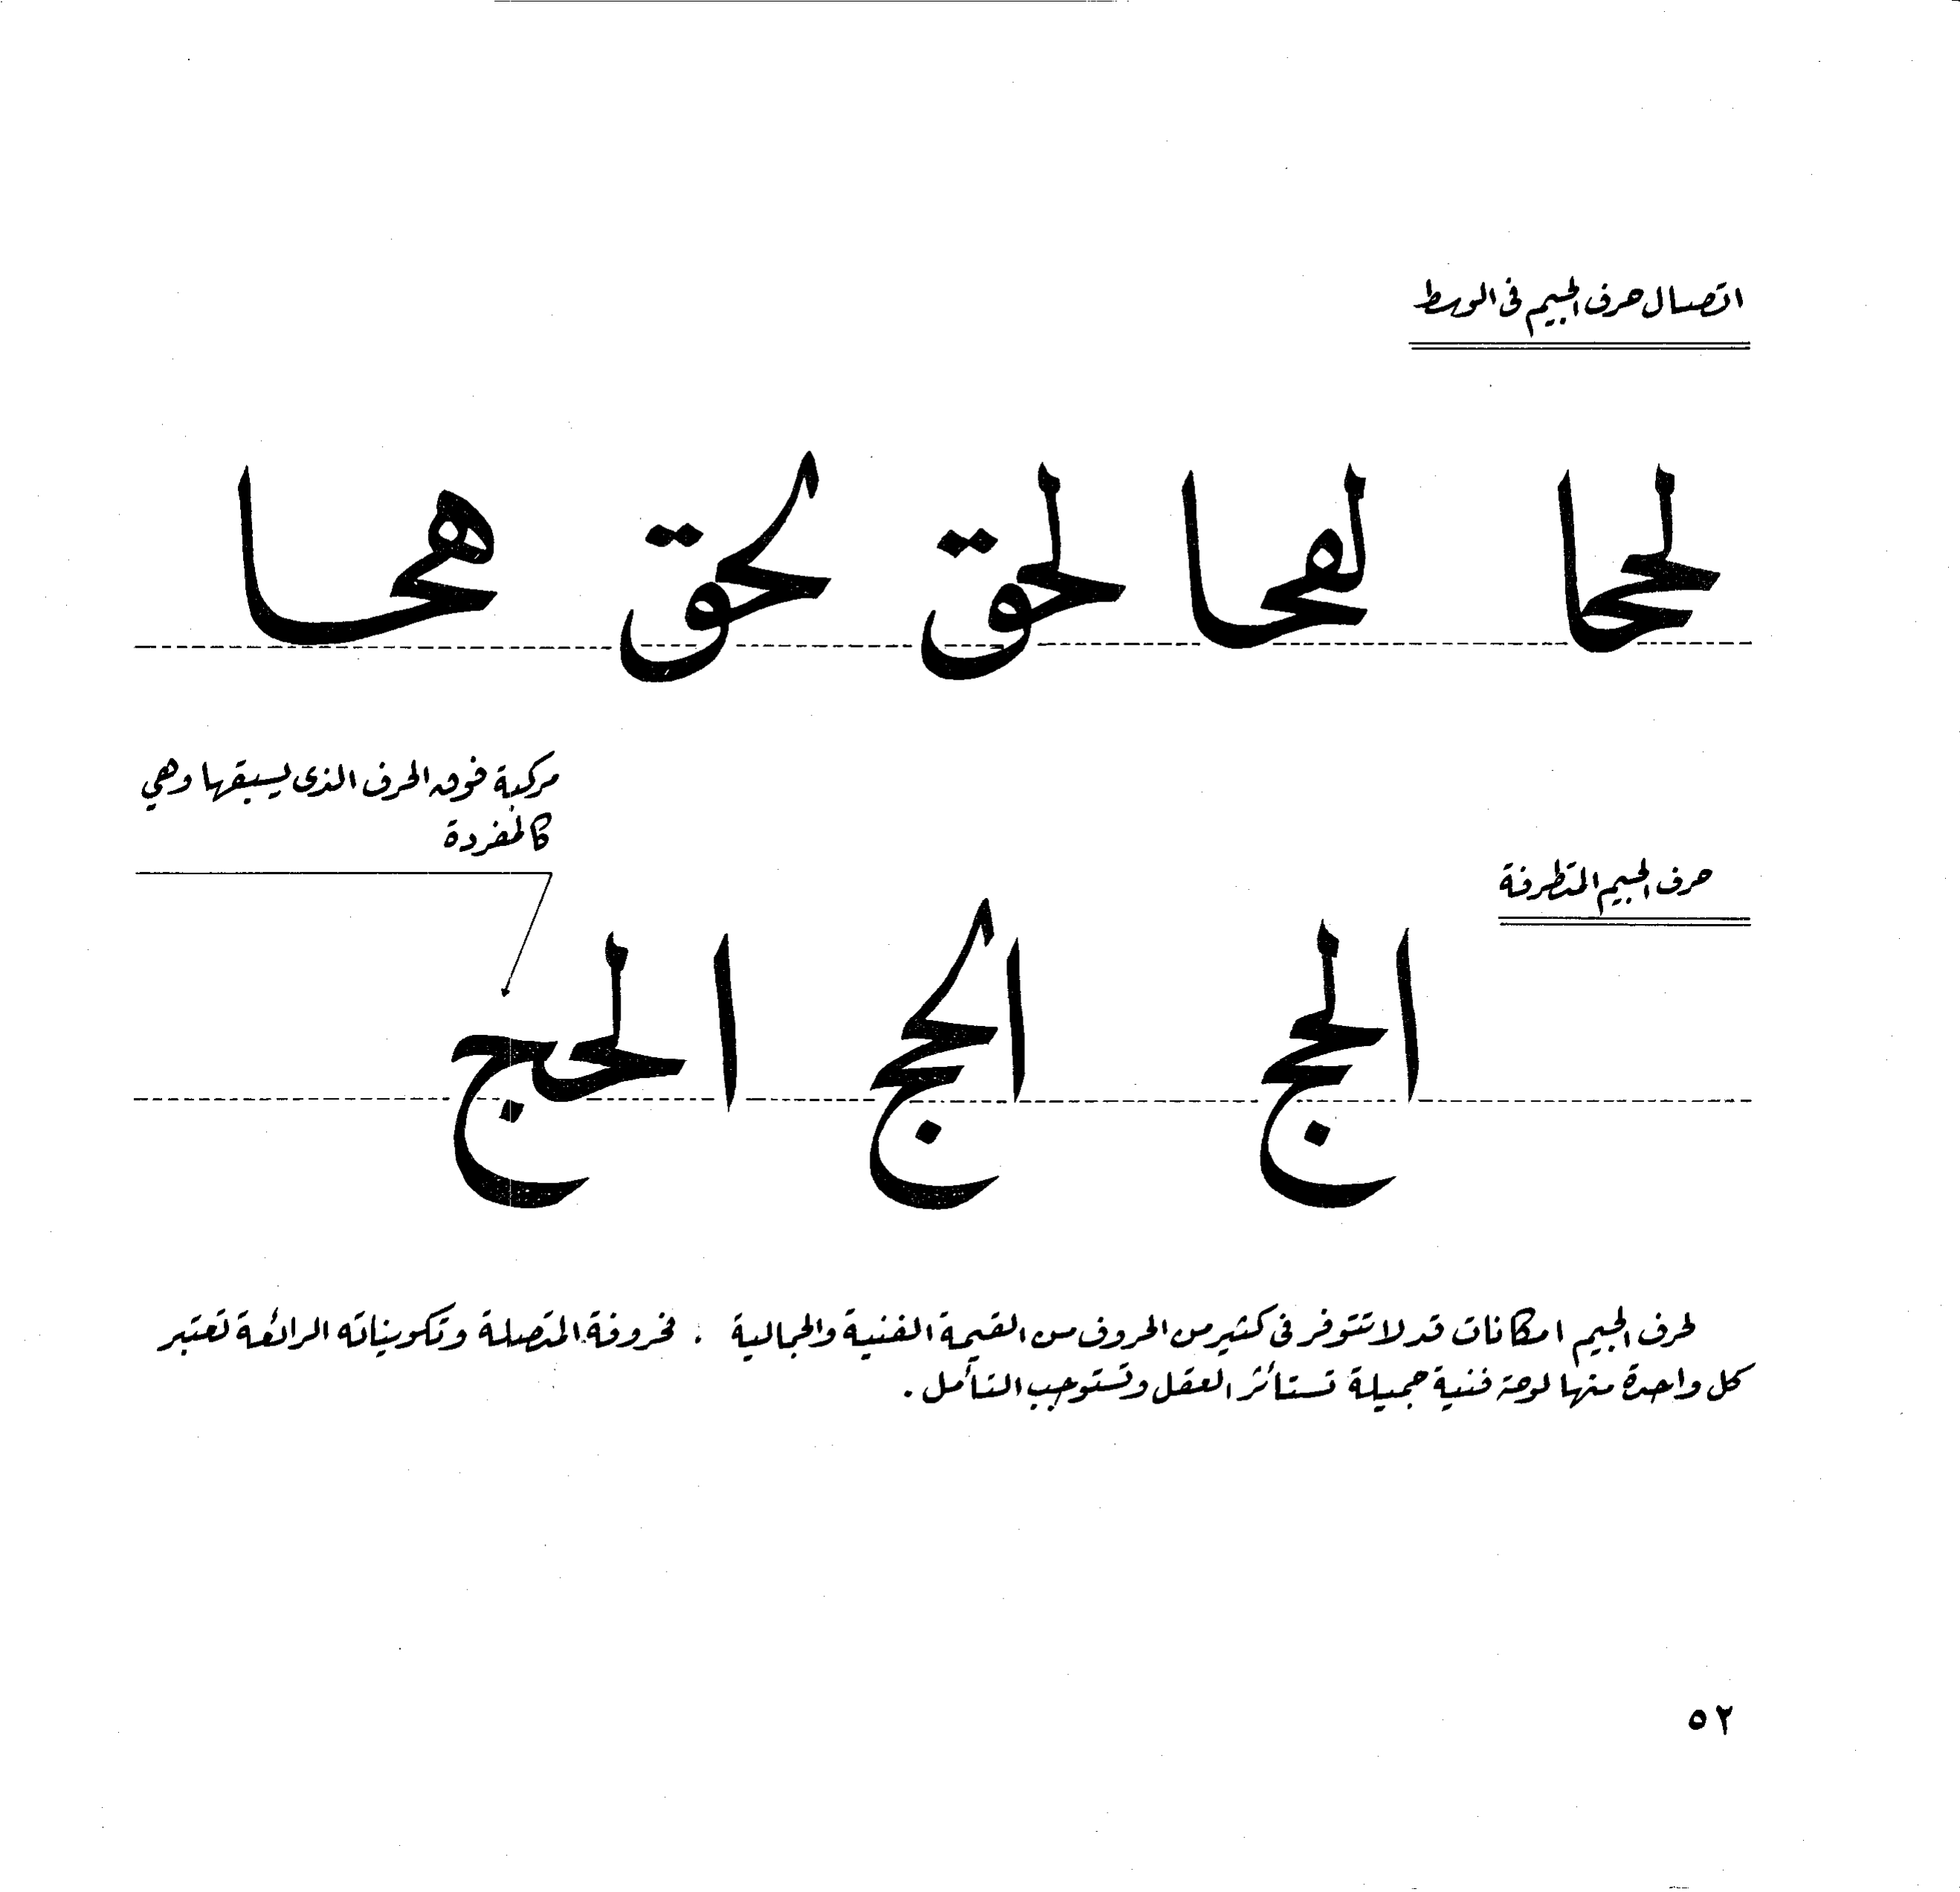 اتصال حرف الجيم فى الوسط
لححا لهحا لحق كحق هحا
مركبة فوق الحرف الذى يسبقها وهي
كالمفردة
حرف الجيم المتطرفة
الحج الحج الحج
لحرف الجيم امكانات قد لا تتوفر فى كثير من الحروف من القيمة الفنية والجمالية . فحروفة المتصلة وتكويناته الرائعة تعتبر
كل واحدة منها لوحة فنية جميلة تستأثر العقل وتستوجب التأمل .
٥٢